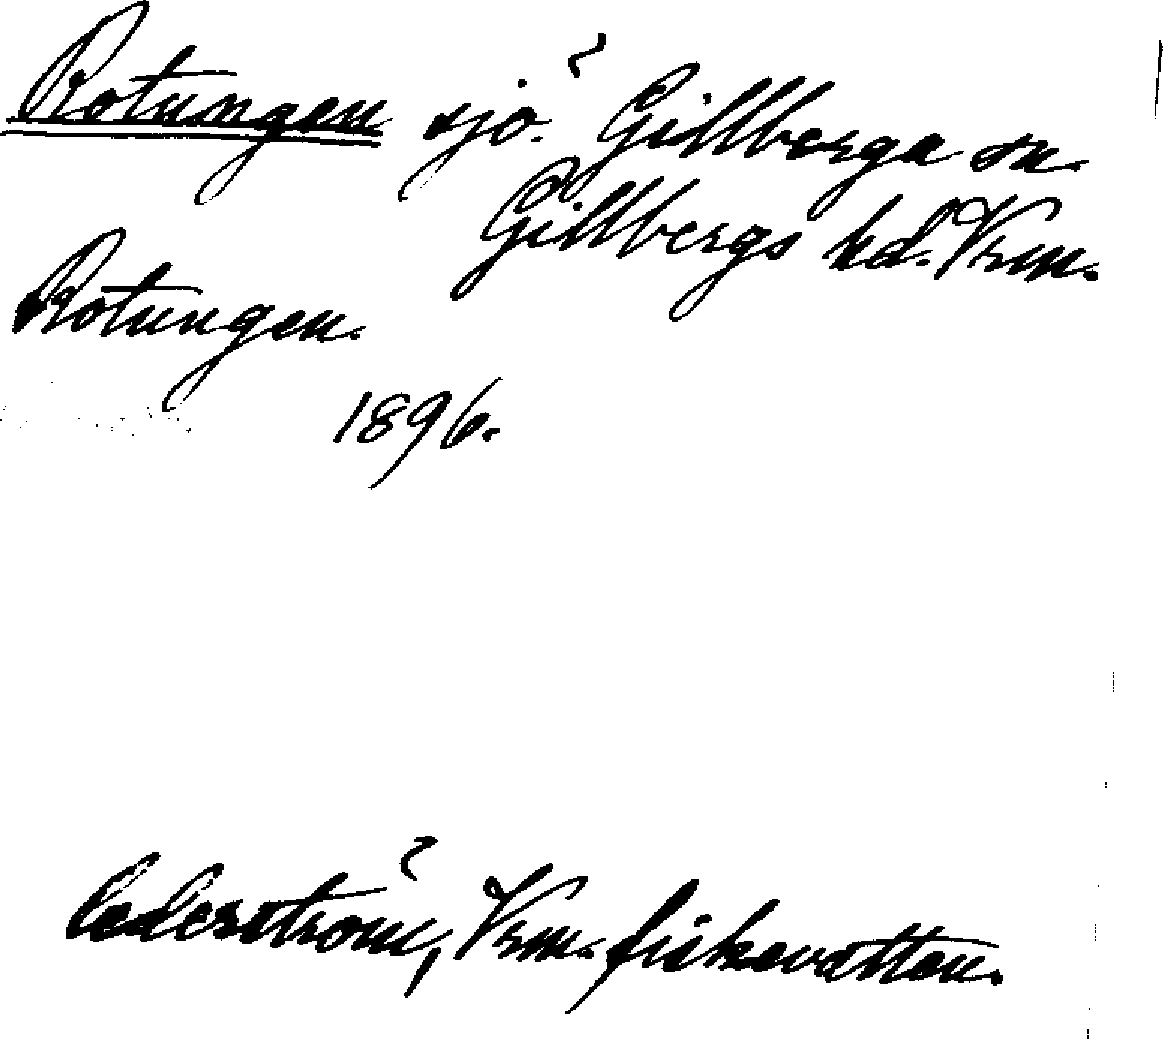 Rotungen sjö. Gillberga sn.
Gillbergs hd. Vrm.
Rotungen.
1896.
Cederström, Vrm. fiskevatten.